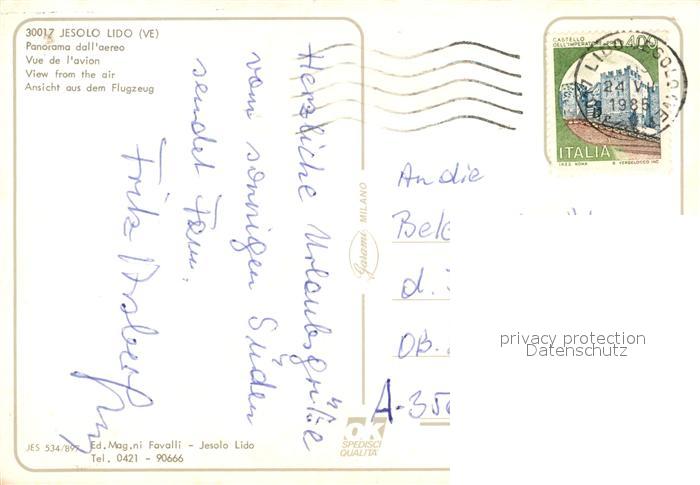 30017 JESOLO LIDO (VE)
Panorama dall'aereo
Vue de l'avion
View from the air
Ansicht aus dem Flugzeug
Herzliche Urlaubsgrüße
vom sonnigen Süden
sendet Fam.
Fritz
CASTELLO
DELL'IMPERATORE
400
LIDO
24 VI
1985
ITALIA
I.P.Z.S. ROMA
E. VERGELOCCO INC.
Garami MILANO
An die
d.
OB.
A-350
privacy protection
Datenschutz
ok
SPEDISCI
QUALITÀ
JES 534/897
Ed.Mag.ni Favalli - Jesolo Lido
Tel. 0421 - 90666